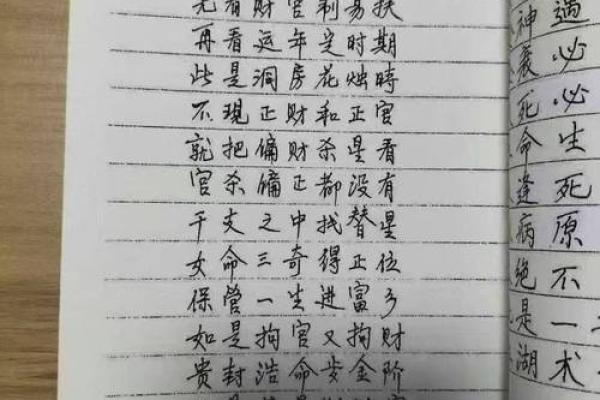 看财官易扶
再看运年定时期
此是洞房花烛時
不現正财和正官
就把偏财杀星看
官杀偏正都没有
干支之中找替星
女命三奇得正位
保管一生进富乡
如是拘官又拘财
贵封浩命步金阶
神過
必
死必
命生
逢死
病原
绝不
是一
湖术